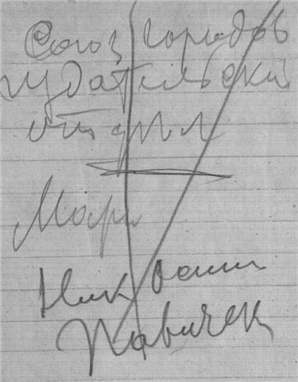 Союз городов
издательский
отдел
Мари
Ник Осип
Павичек